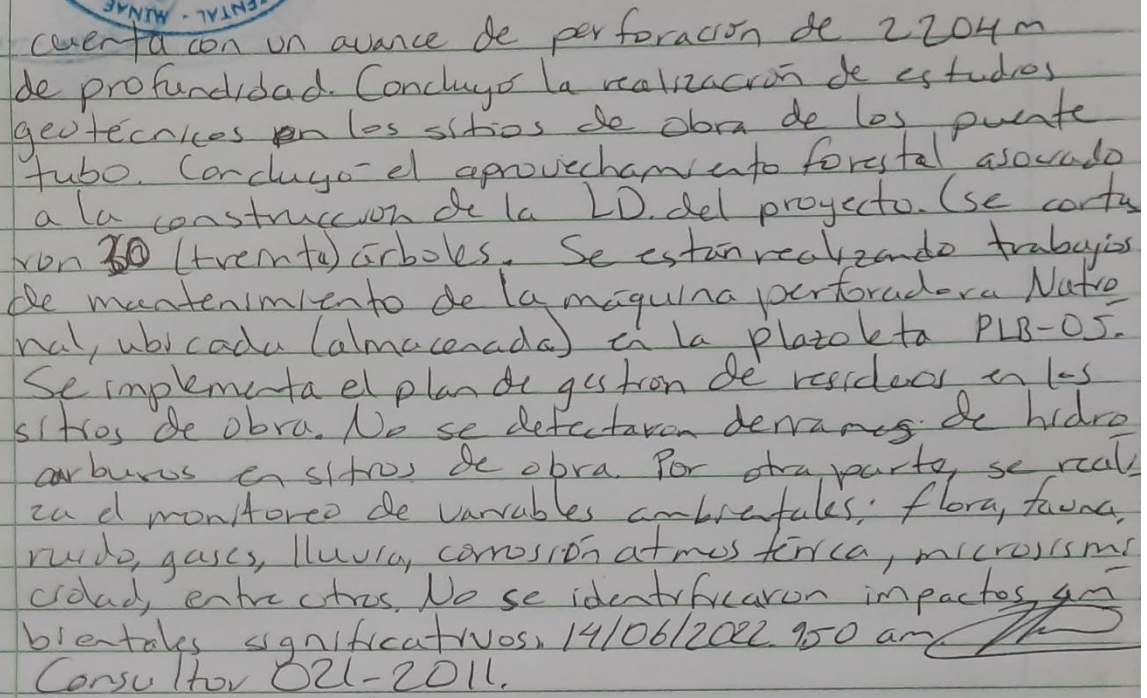 MENTAL - MINAE
cuenta con un avance de perforación de 2204m
de profundidad. Concluyó la realización de estudios
geotécnicos en los sitios de obra de los puente
tubo. Concluyó el aprovechamiento forestal asociado
a la construccion de la LD. del proyecto. (se corta
ron 30 (treinta) árboles. Se están realizando trabajos
de mantenimiento de la máquina perforadora Natio
nal, ubicada (almacenada) en la plazoleta PLB-05.
Se implementa el plan de gestion de residuos en los
sitios de obra. No se detectaron derrames de hidro
carburos en sitios de obra. Por otra parte, se reali
za el monitoreo de variables ambientales: flora, fauna,
ruido, gases, lluvia, corrosión atmosférica, microsismi
cidad, entre otros. No se identificaron impactos am
bientales significativos. 14/06/2022. 950 am
Consultor 021-2011.